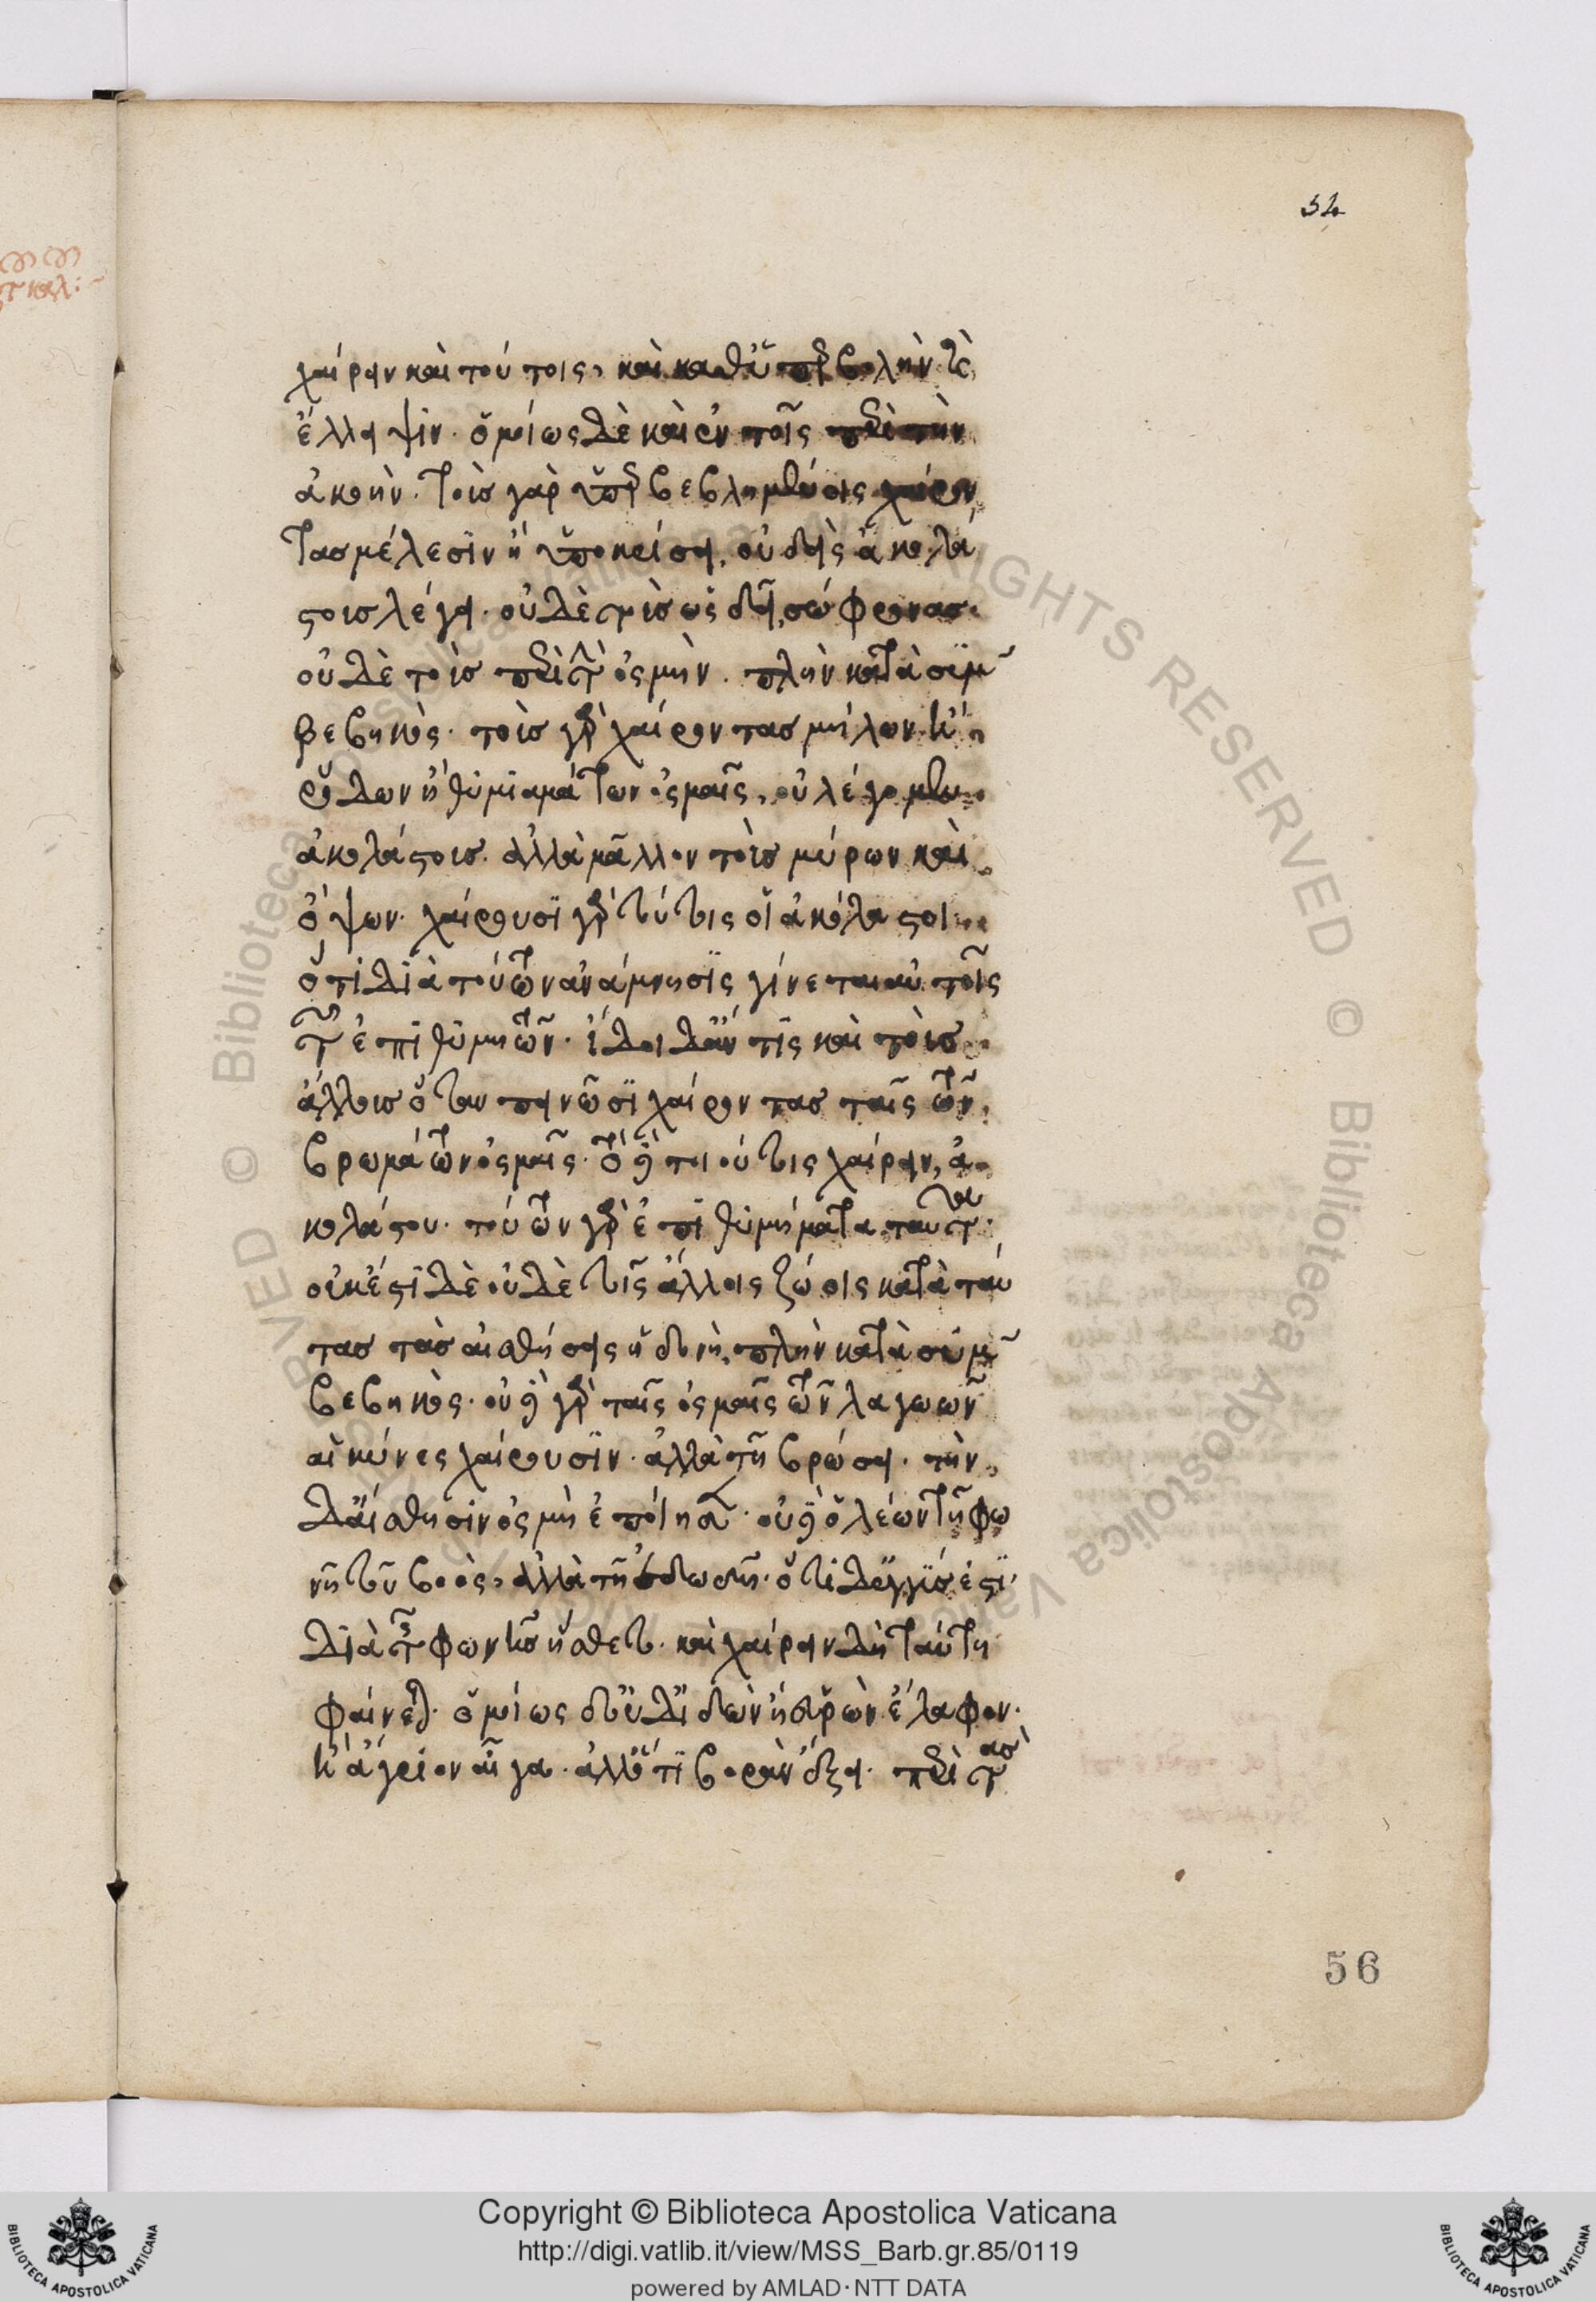 54
χαίρειν καὶ τούτοις, καὶ καθ' ὑπερβολὴν καὶ
ἔλλειψιν. ὁμοίως δὲ καὶ ἐν τοῖς περὶ τὴν
ἀκοήν. τοὺς γὰρ ὑπερβεβλημένως χαίρον
τας μέλεσιν ἢ ὑποκρίσει, οὐδεὶς ἀκολά
στους λέγει. οὐδὲ τοὺς ὡς δεῖ, σώφρονας.
οὐδὲ τοὺς περὶ τὴν ὀσμήν. πλὴν κατὰ συμ
βεβηκός. τοὺς γὰρ χαίροντας μήλων καὶ ἢ
ῥόδων ἢ θυμιαμάτων ὀσμαῖς, οὐ λέγομεν
ἀκολάστους. ἀλλὰ μᾶλλον τοὺς μύρων καὶ
ὄψων. χαίρουσι γὰρ τούτοις οἱ ἀκόλαστοι
ὅτι διὰ τούτων ἀνάμνησις γίνεται αὐτοῖς
τῶν ἐπιθυμητῶν. ἴδοι δ' ἄν τις καὶ τοὺς
ἄλλους ὅταν πεινῶσι χαίροντας ταῖς τῶν
βρωμάτων ὀσμαῖς. τὸ δὲ τοιούτοις χαίρειν, ἀ
κολάστου. τούτων γὰρ ἐπιθυμήματα ταῦτα.
οὐκ ἔστι δὲ οὐδὲ τοῖς ἄλλοις ζώοις κατὰ ταύ
τας τὰς αἰσθήσεις ἡδονή, πλὴν κατὰ συμ
βεβηκός. οὐδὲ γὰρ ταῖς ὀσμαῖς τῶν λαγωῶν
αἱ κύνες χαίρουσιν. ἀλλὰ τῇ βρώσει. τὴν
δ' αἴσθησιν ὀσμὴ ἐποίησεν. οὐδὲ ὁ λέων τῇ φω
νῇ τοῦ βοός, ἀλλὰ τῇ ἐδωδῇ. ὅτι δ' ἐγγύς ἐστι
διὰ τῆς φωνῆς ᾔσθετο. καὶ χαίρειν δὴ ταύτῃ
φαίνεται. ὁμοίως δ' οὐδ' ἰδὼν ἢ εὑρὼν ἔλαφον.
καὶ ἄγριον αἶγα. ἀλλ' ὅτι βορὰν ἕξει. περὶ τὰς
56
Copyright © Biblioteca Apostolica Vaticana
http://digi.vatlib.it/view/MSS_Barb.gr.85/0119
powered by AMLAD·NTT DATA